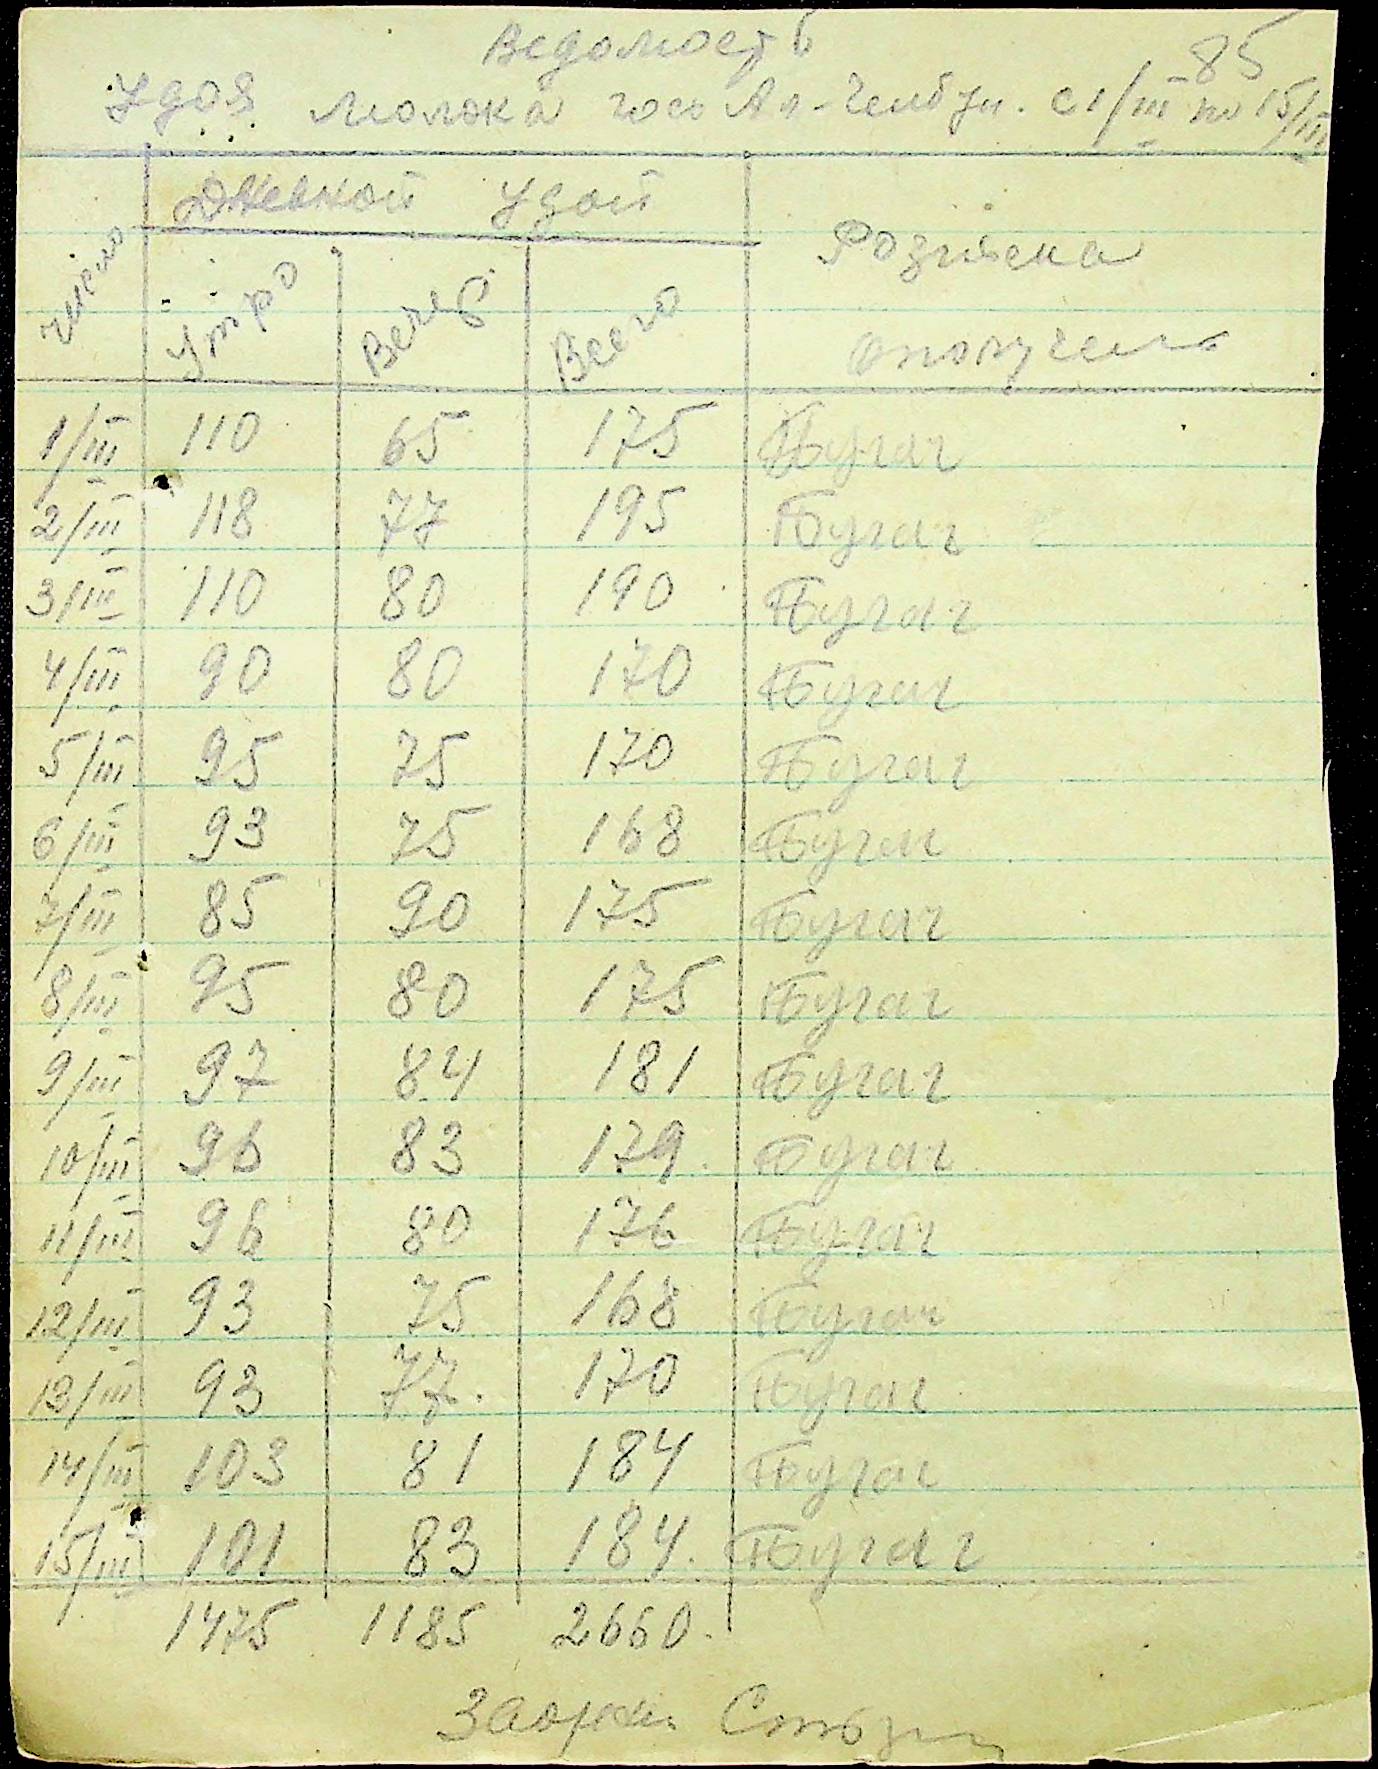 Ведомость
85
Удоя молока гос с 1/III по 15/III
Число Дневной Удой Розписка
Утро Вечер Всего
1/III 110 65 175 Бугач
2/III 118 77 195 Бугач
3/III 110 80 190 Бугач
4/III 90 80 170 Бугач
5/III 95 75 170 Бугач
6/III 93 75 168 Бугач
7/III 85 90 175 Бугач
8/III 95 80 175 Бугач
9/III 97 84 181 Бугач
10/III 96 83 179 Бугач
11/III 96 80 176 Бугач
12/III 93 75 168 Бугач
13/III 93 77. 170 Бугач
14/III 103 81 184 Бугач
15/III 101 83 184. Бугач
1475 1185 2660.